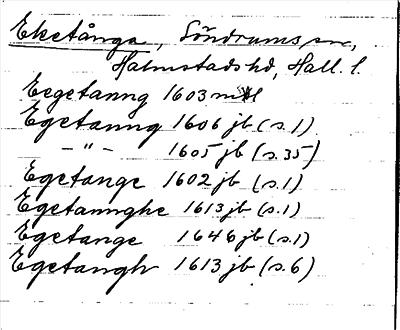 Eketånga, Söndrums sn,
Halmstads hd, Hall. l.
Eegetanng 1603 mtl
Egetanng 1606 jb (s.1)
— " — 1605 jb (s.35)
Egetange 1602 jb (s.1)
Egetannghe 1613 jb (s.1)
Egetange 1646 jb (s.1)
Egetangh 1613 jb (s.6)